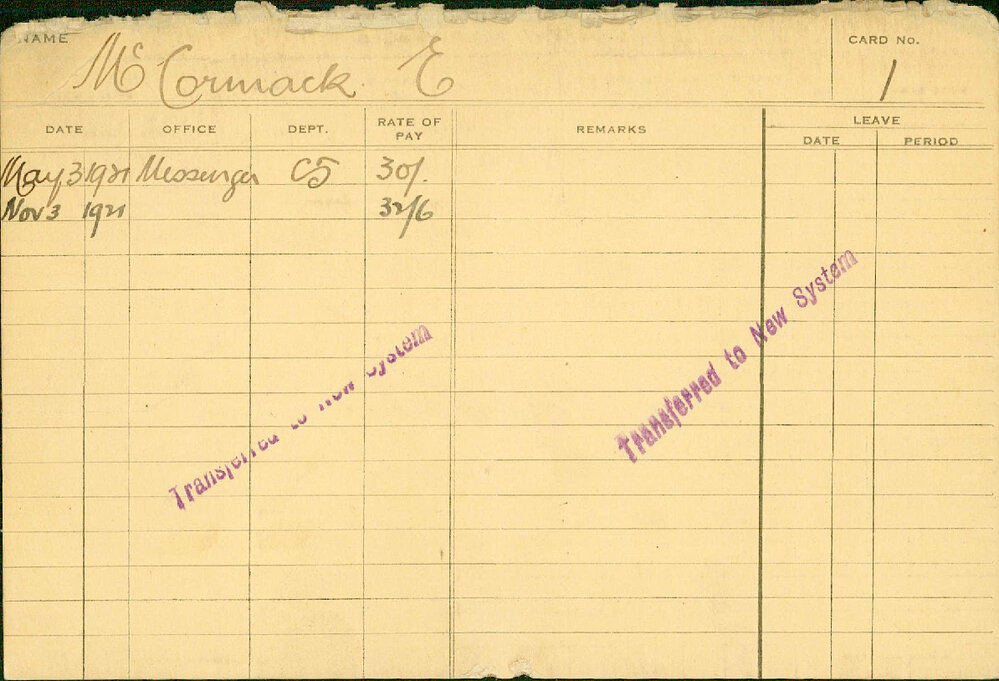 NAME McCormack. E CARD No. 1
DATE OFFICE DEPT. RATE OF PAY REMARKS LEAVE
DATE PERIOD
May 3 1921 Messenger C5 30/.
Nov 3 1921 32/6
Transferred to New System
Transferred to New System